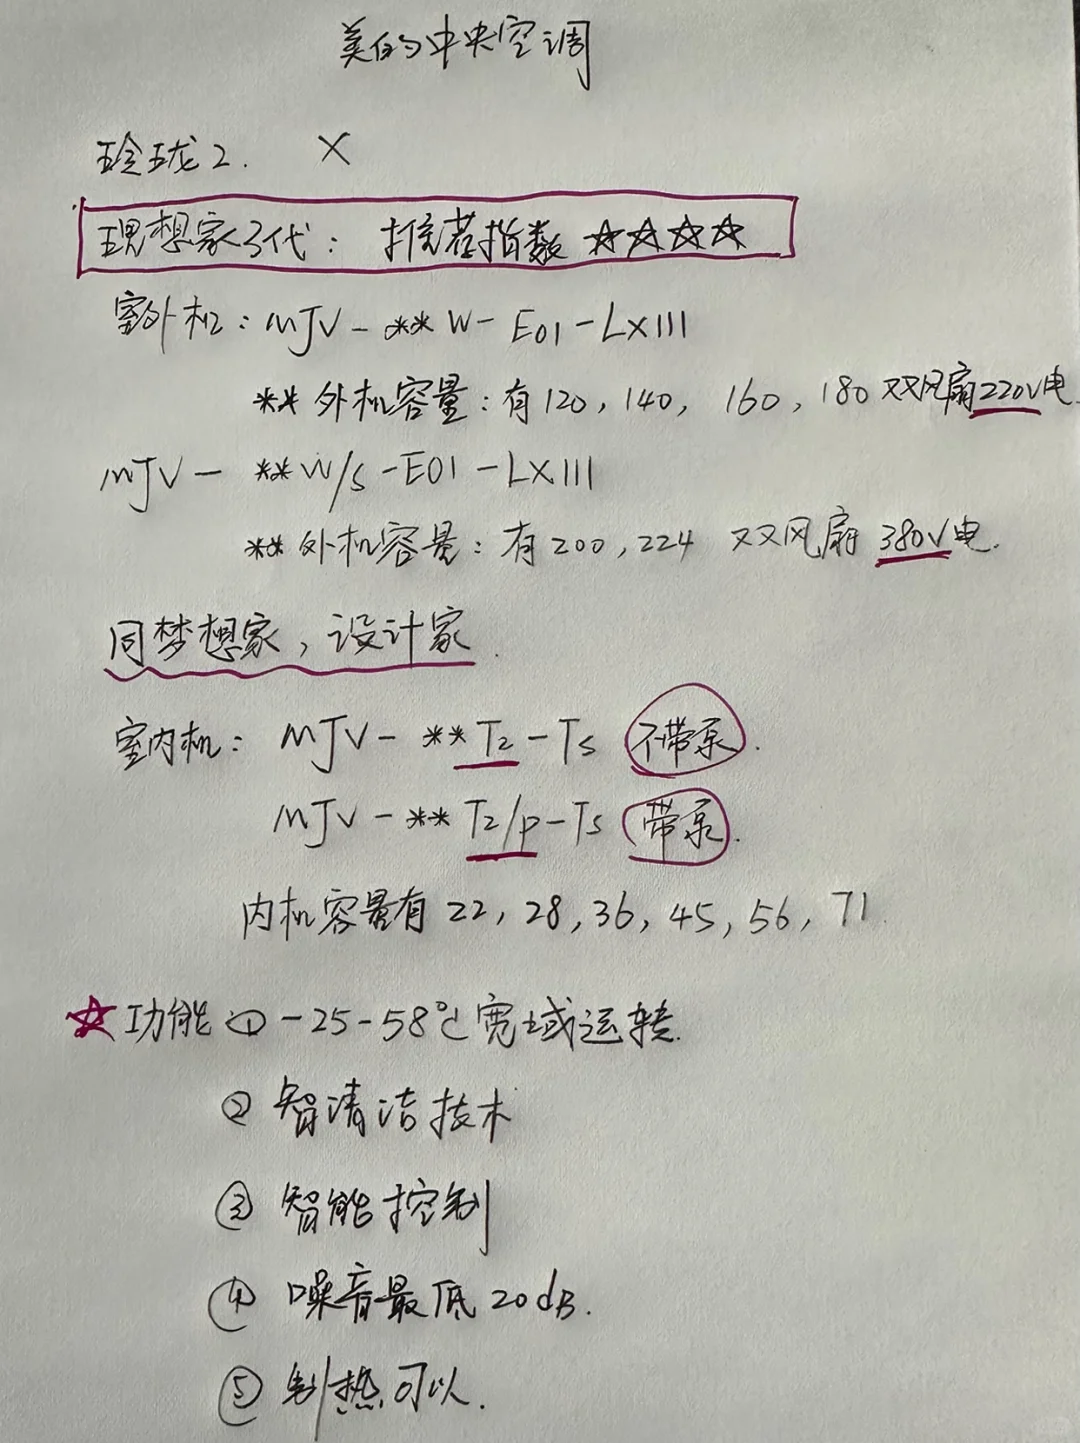 美的中央空调
玲珑2. ×
理想家3代: 推荐指数 ☆☆☆☆
室外机: MJV-**W-E01-LXIII
** 外机容量: 有120, 140, 160, 180 双风扇220V电.
MJV-**W/S-E01-LXIII
** 外机容量: 有200, 224 双风扇 380V电.
同梦想家, 设计家.
室内机: MJV-**T2-TS 不带泵.
MJV-**T2/P-TS 带泵.
内机容量有 22, 28, 36, 45, 56, 71
☆功能 ① -25-58℃宽域运转.
② 智清洁技术
③ 智能控制
④ 噪音最低20dB.
⑤ 制热可以.